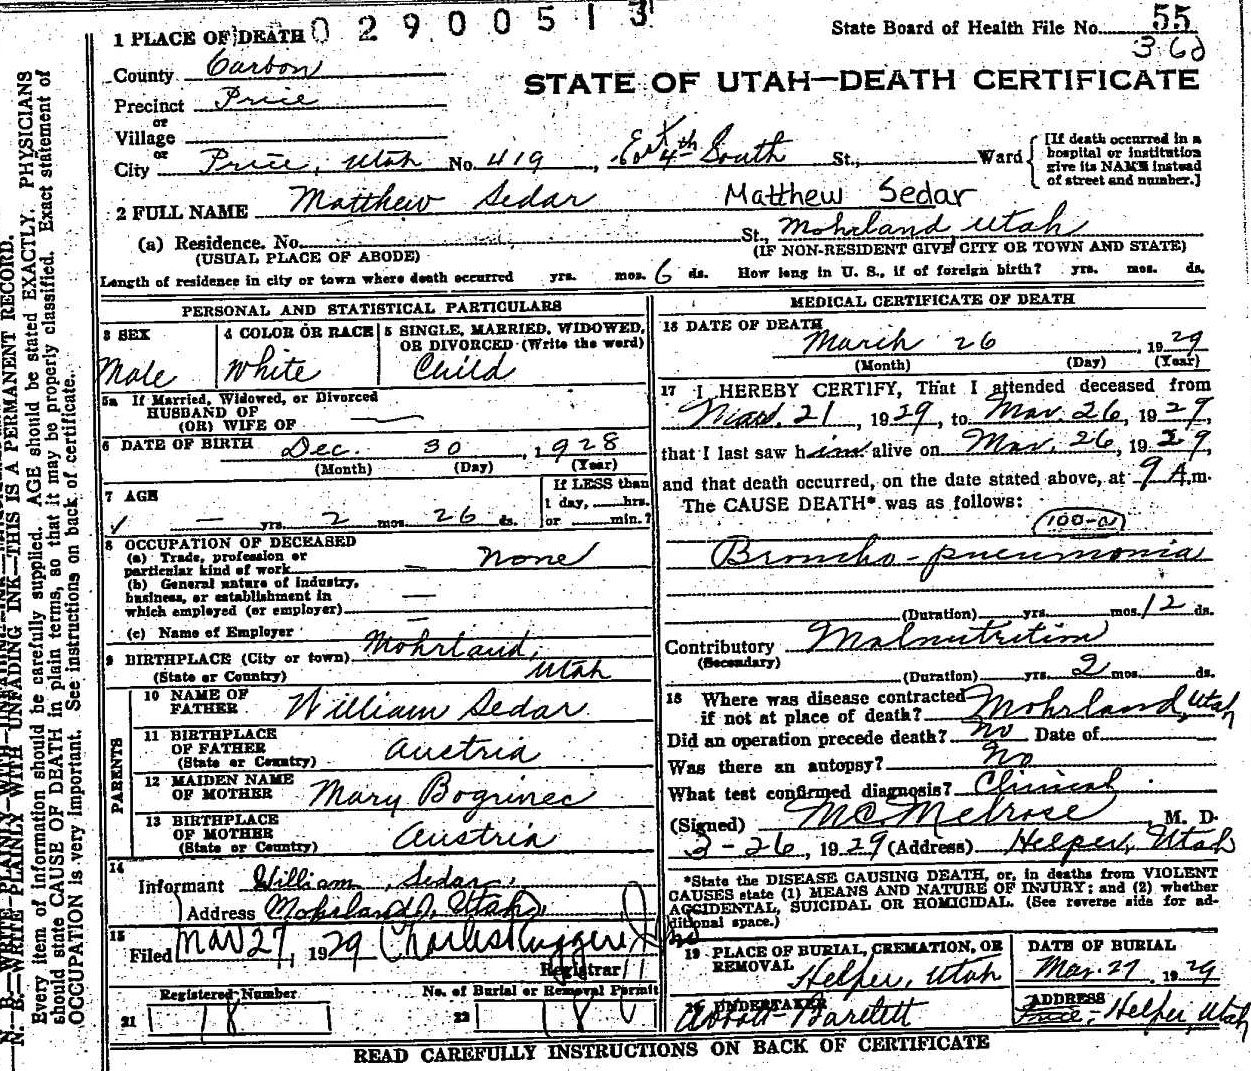 1 PLACE OF DEATH 02900513
State Board of Health File No. 55
County Carbon
STATE OF UTAH—DEATH CERTIFICATE
Precinct Price
or
Village
or
City Price, Utah No. 419, East 4th South St., Ward
[If death occurred in a
hospital or institution
give its NAME instead
of street and number.]
2 FULL NAME Matthew Sedar Matthew Sedar
(a) Residence. No. St., Mohrland Utah
(USUAL PLACE OF ABODE) (IF NON-RESIDENT GIVE CITY OR TOWN AND STATE)
Length of residence in city or town where death occurred yrs. mos. 6 ds. How long in U. S., if of foreign birth? yrs. mos. ds.
PERSONAL AND STATISTICAL PARTICULARS
3 SEX
Male
4 COLOR OR RACE
White
5 SINGLE, MARRIED, WIDOWED,
OR DIVORCED (Write the word)
Child
5a If Married, Widowed, or Divorced
HUSBAND OF
(OR) WIFE OF —
6 DATE OF BIRTH Dec. 30, 1928
(Month) (Day) (Year)
7 AGE
— yrs. 2 mos. 26 ds.
If LESS than
1 day, hrs.
or min.?
8 OCCUPATION OF DECEASED
(a) Trade, profession or
particular kind of work — none
(b) General nature of industry,
business, or establishment in
which employed (or employer) —
(c) Name of Employer —
9 BIRTHPLACE (City or town) Mohrland,
(State or Country) Utah
PARENTS
10 NAME OF
FATHER William Sedar
11 BIRTHPLACE
OF FATHER
(State or Country) Austria
12 MAIDEN NAME
OF MOTHER Mary Bogrinec
13 BIRTHPLACE
OF MOTHER
(State or Country) Austria
14
Informant William Sedar,
Address Mohrland, Utah
15
Filed Mar 27, 1929 Charles Ruggeri
Registrar
Registered Number
21 18
No. of Burial or Removal Permit
22 18
MEDICAL CERTIFICATE OF DEATH
16 DATE OF DEATH
March 26, 1929
(Month) (Day) (Year)
17 I HEREBY CERTIFY, That I attended deceased from
Mar. 21, 1929, to Mar. 26, 1929,
that I last saw him alive on Mar. 26, 1929,
and that death occurred, on the date stated above, at 9 A.m.
The CAUSE DEATH* was as follows:
100-a
Broncho-pneumonia
(Duration) yrs. mos. 12 ds.
Contributory Malnutrition
(Secondary)
(Duration) yrs. 2 mos. ds.
18 Where was disease contracted
if not at place of death? Mohrland, Utah
Did an operation precede death? no Date of
Was there an autopsy? No
What test confirmed diagnosis? Clinical
(Signed) MC Melrose, M. D.
3-26, 1929 (Address) Helper, Utah
*State the DISEASE CAUSING DEATH, or, in deaths from VIOLENT
CAUSES state (1) MEANS AND NATURE OF INJURY; and (2) whether
ACCIDENTAL, SUICIDAL OR HOMICIDAL. (See reverse side for ad-
ditional space.)
19 PLACE OF BURIAL, CREMATION, OR
REMOVAL Helper, Utah
DATE OF BURIAL
Mar. 27 1929
20 UNDERTAKER
Bartlett
ADDRESS
Price - Helper, Utah
READ CAREFULLY INSTRUCTIONS ON BACK OF CERTIFICATE
N. B.—WRITE PLAINLY WITH UNFADING INK—THIS IS A PERMANENT RECORD.
Every item of information should be carefully supplied. AGE should be stated EXACTLY. PHYSICIANS
should state CAUSE OF DEATH in plain terms, so that it may be properly classified. Exact statement of
OCCUPATION is very important. See instructions on back of certificate.